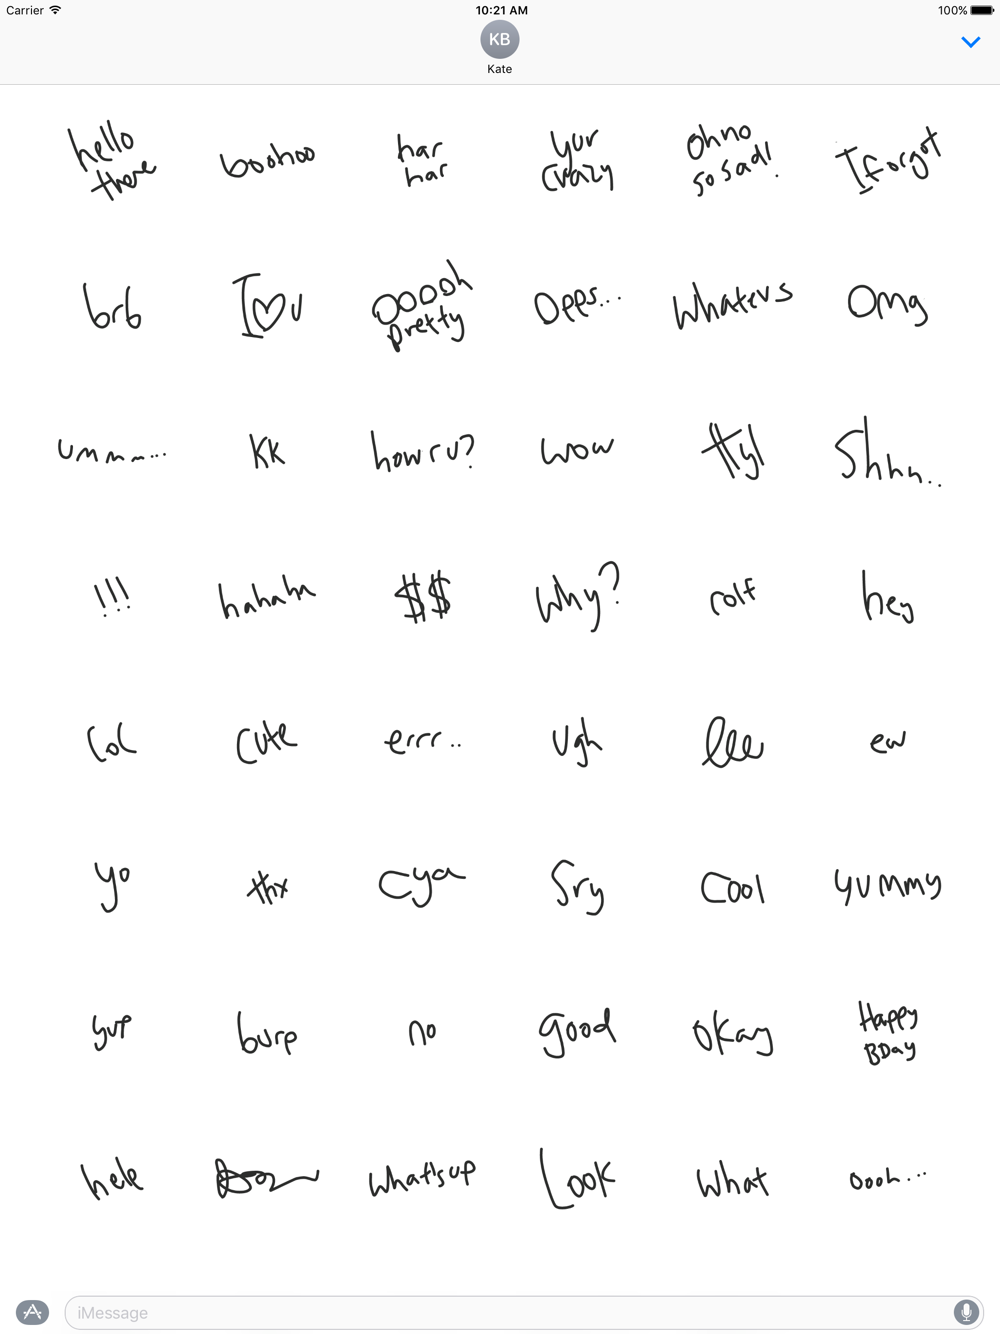 Carrier 10:21 AM 100%
KB
Kate
hello there
boohoo
har har
yur crazy
oh no so sad!
I forgot
brb
I ♡ u
ooooh pretty
opps...
whatevs
omg
ummm...
KK
how r u?
wow
ttyl
Shhh..
!!!
hahaha
$$
why?
rolf
hey
lol
cute
errr..
ugh
ew
yo
thx
cya
Sry
cool
yummy
yup
burp
no
good
okay
Happy BDay
what's up
Look
what
oooh...
iMessage